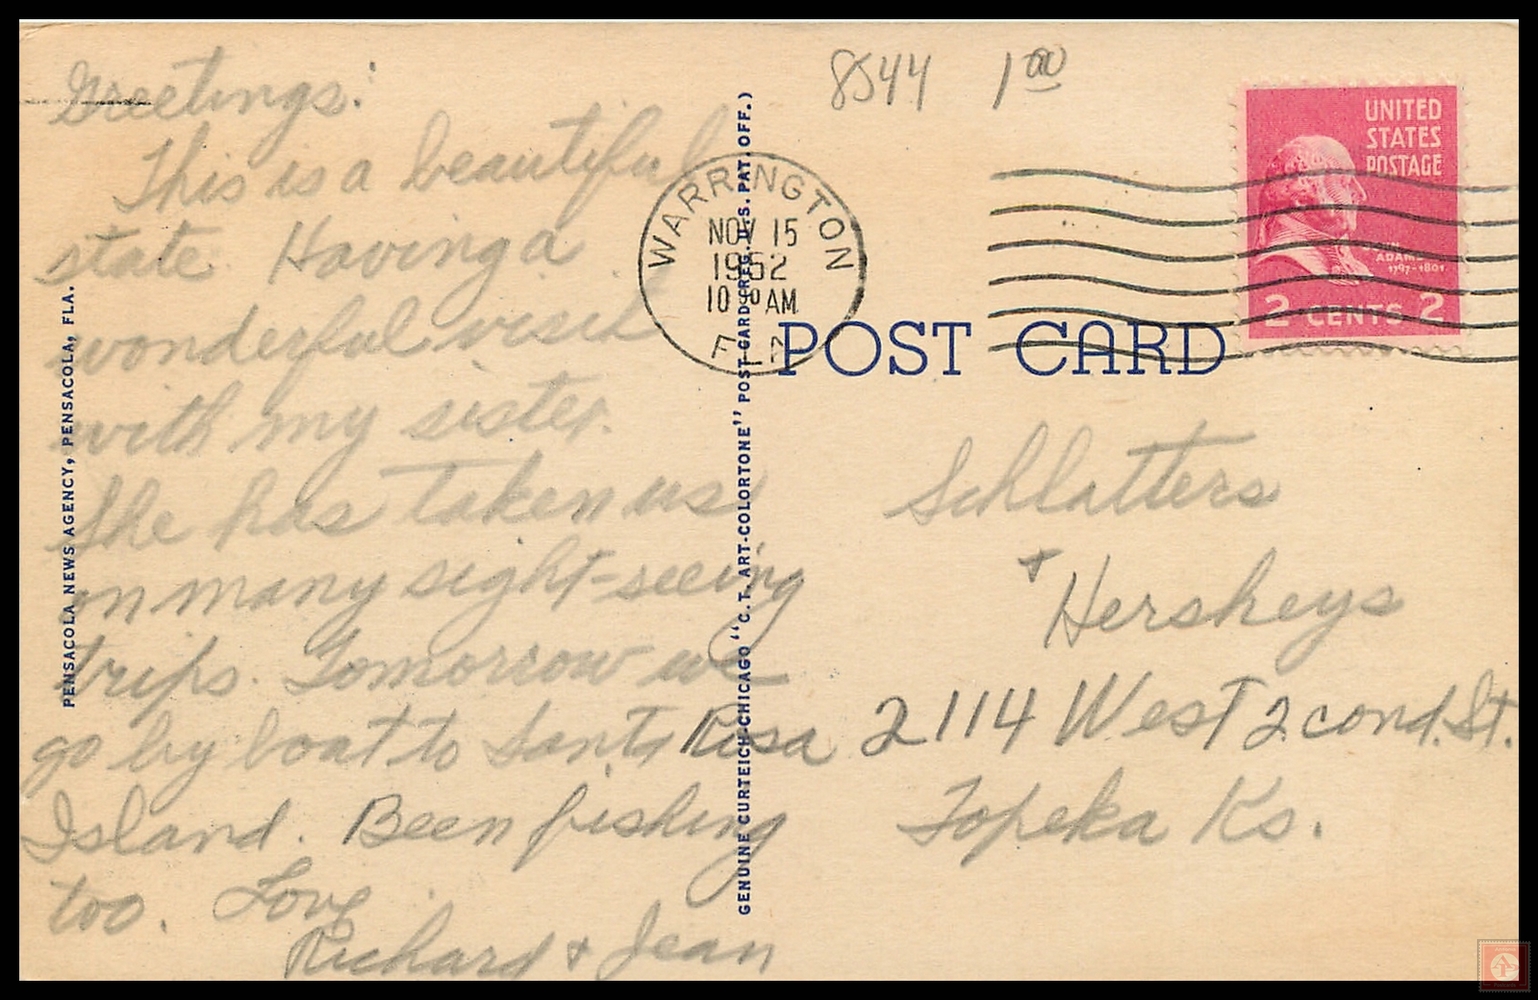 Greetings:
This is a beautiful
state. Having a
wonderful visit
with my sister.
She has taken us
on many sight-seeing
trips. Tomorrow we
go by boat to Santa Rosa
Island. Been fishing
too. Love
Richard + Jean
PENSACOLA NEWS AGENCY, PENSACOLA, FLA.
GENUINE CURTEICH-CHICAGO "C.T. ART-COLORTONE" POST CARD (REG. U.S. PAT. OFF.)
8544 1 00
WARRINGTON
NOV 15
1952
10 30 AM
FLA
POST CARD
UNITED
STATES
POSTAGE
JOHN
ADAMS
1797-1801
2 CENTS 2
Schlatters
+ Hersheys
2114 West 2cond. St.
Topeka Ks.